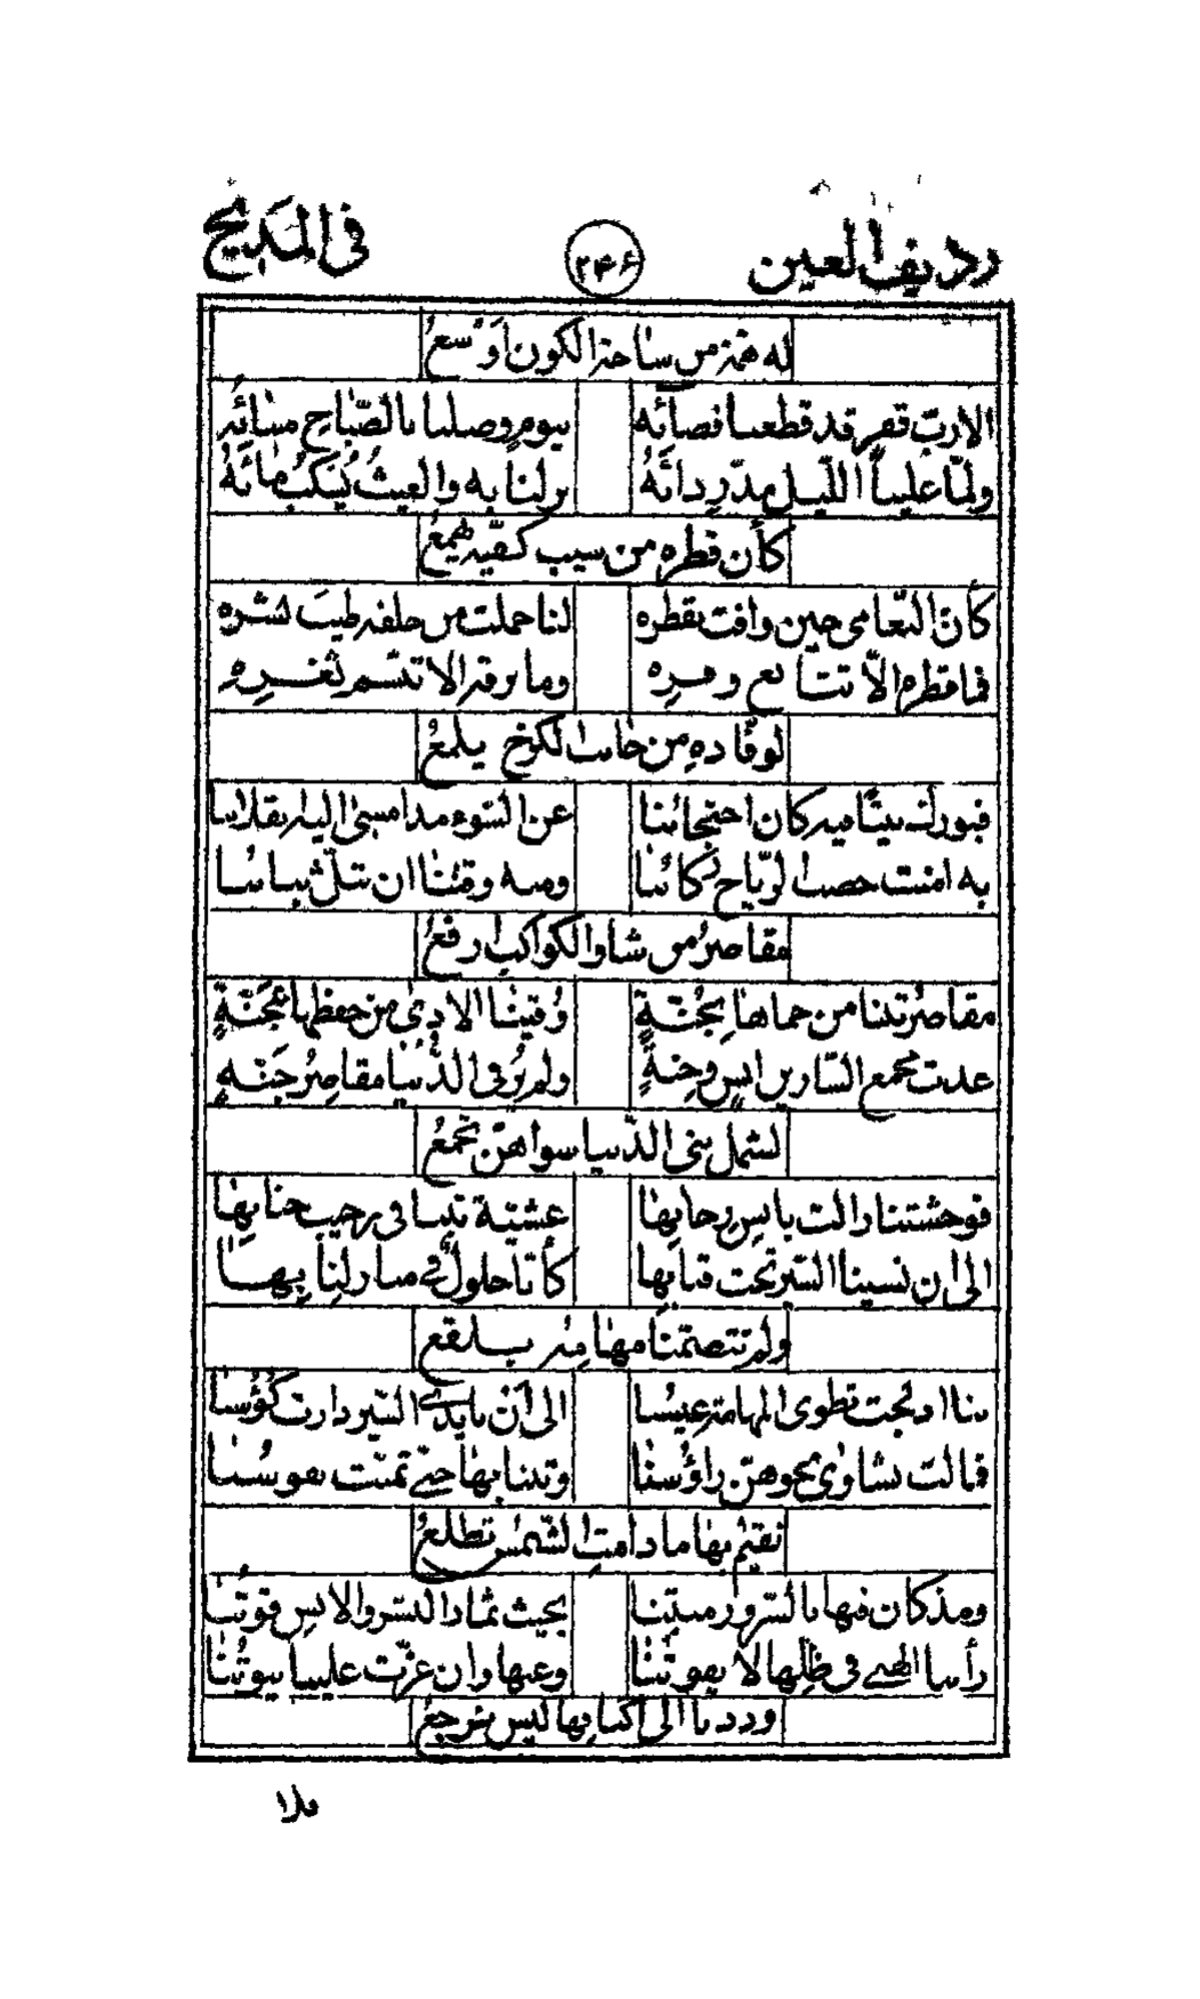 رديف العين ٢٤٦ في المديح
له همة من ساحة الكون اوسع
الا رب قفر قد قطعنا فضائه بيوم وصلنا بالصباح مسائه
ولما علينا الليل مد ردائه نزلنا به والغيث يسكب مائه
كأن قطره من سيب كفيه يهمع
كأن النعامى حين وافت بقطره لنا حملت من خلقه طيب نشره
فما قطره الا تتابع وفره وما برقه الا تبسم ثغره
لوفاده من جانب الكرخ يلمع
فبورك بيتا فيه كان احتجائنا عن السوء مذ امسى اليه
به امنت حصب الرياح ركائبنا ومنه وقتنا ان تبل ثيابنا
مقاصر من شاو الكواكب ارفع
مقاصر تنا من حماها بجنة وقينا الاذى من حفظها بمجنة
غدت مجمع السارين انس وجنة ولم نر في الدنيا مقاصر جنة
لشمل بني الدنيا سواهن تجمع
فوحشتنا زالت بانس رحابها عشية بتنا في رحيب جنابها
الى ان نسينا السير تحت قبابها كأنا حلول في منازلنا بها
ولم تتضمنا مهامه بلقع
بنا ادلجت تطوى المهامه عيسنا الى ان بايدي السير دارت كؤسنا
فمالت نشاوى نحوهن رؤسنا وبتنا بها حتى تمنت نفوسنا
نقيم بها ما دامت الشمس تطلع
ومذ كان فيها بالسرور مبيتنا بحيث ثمار البشر والانس قوتنا
رأينا الهنى في ظلها لا يفوتنا وعنها وان عزت علينا بيوتنا
وددنا الى اكنابها ليس نرجع
فلا